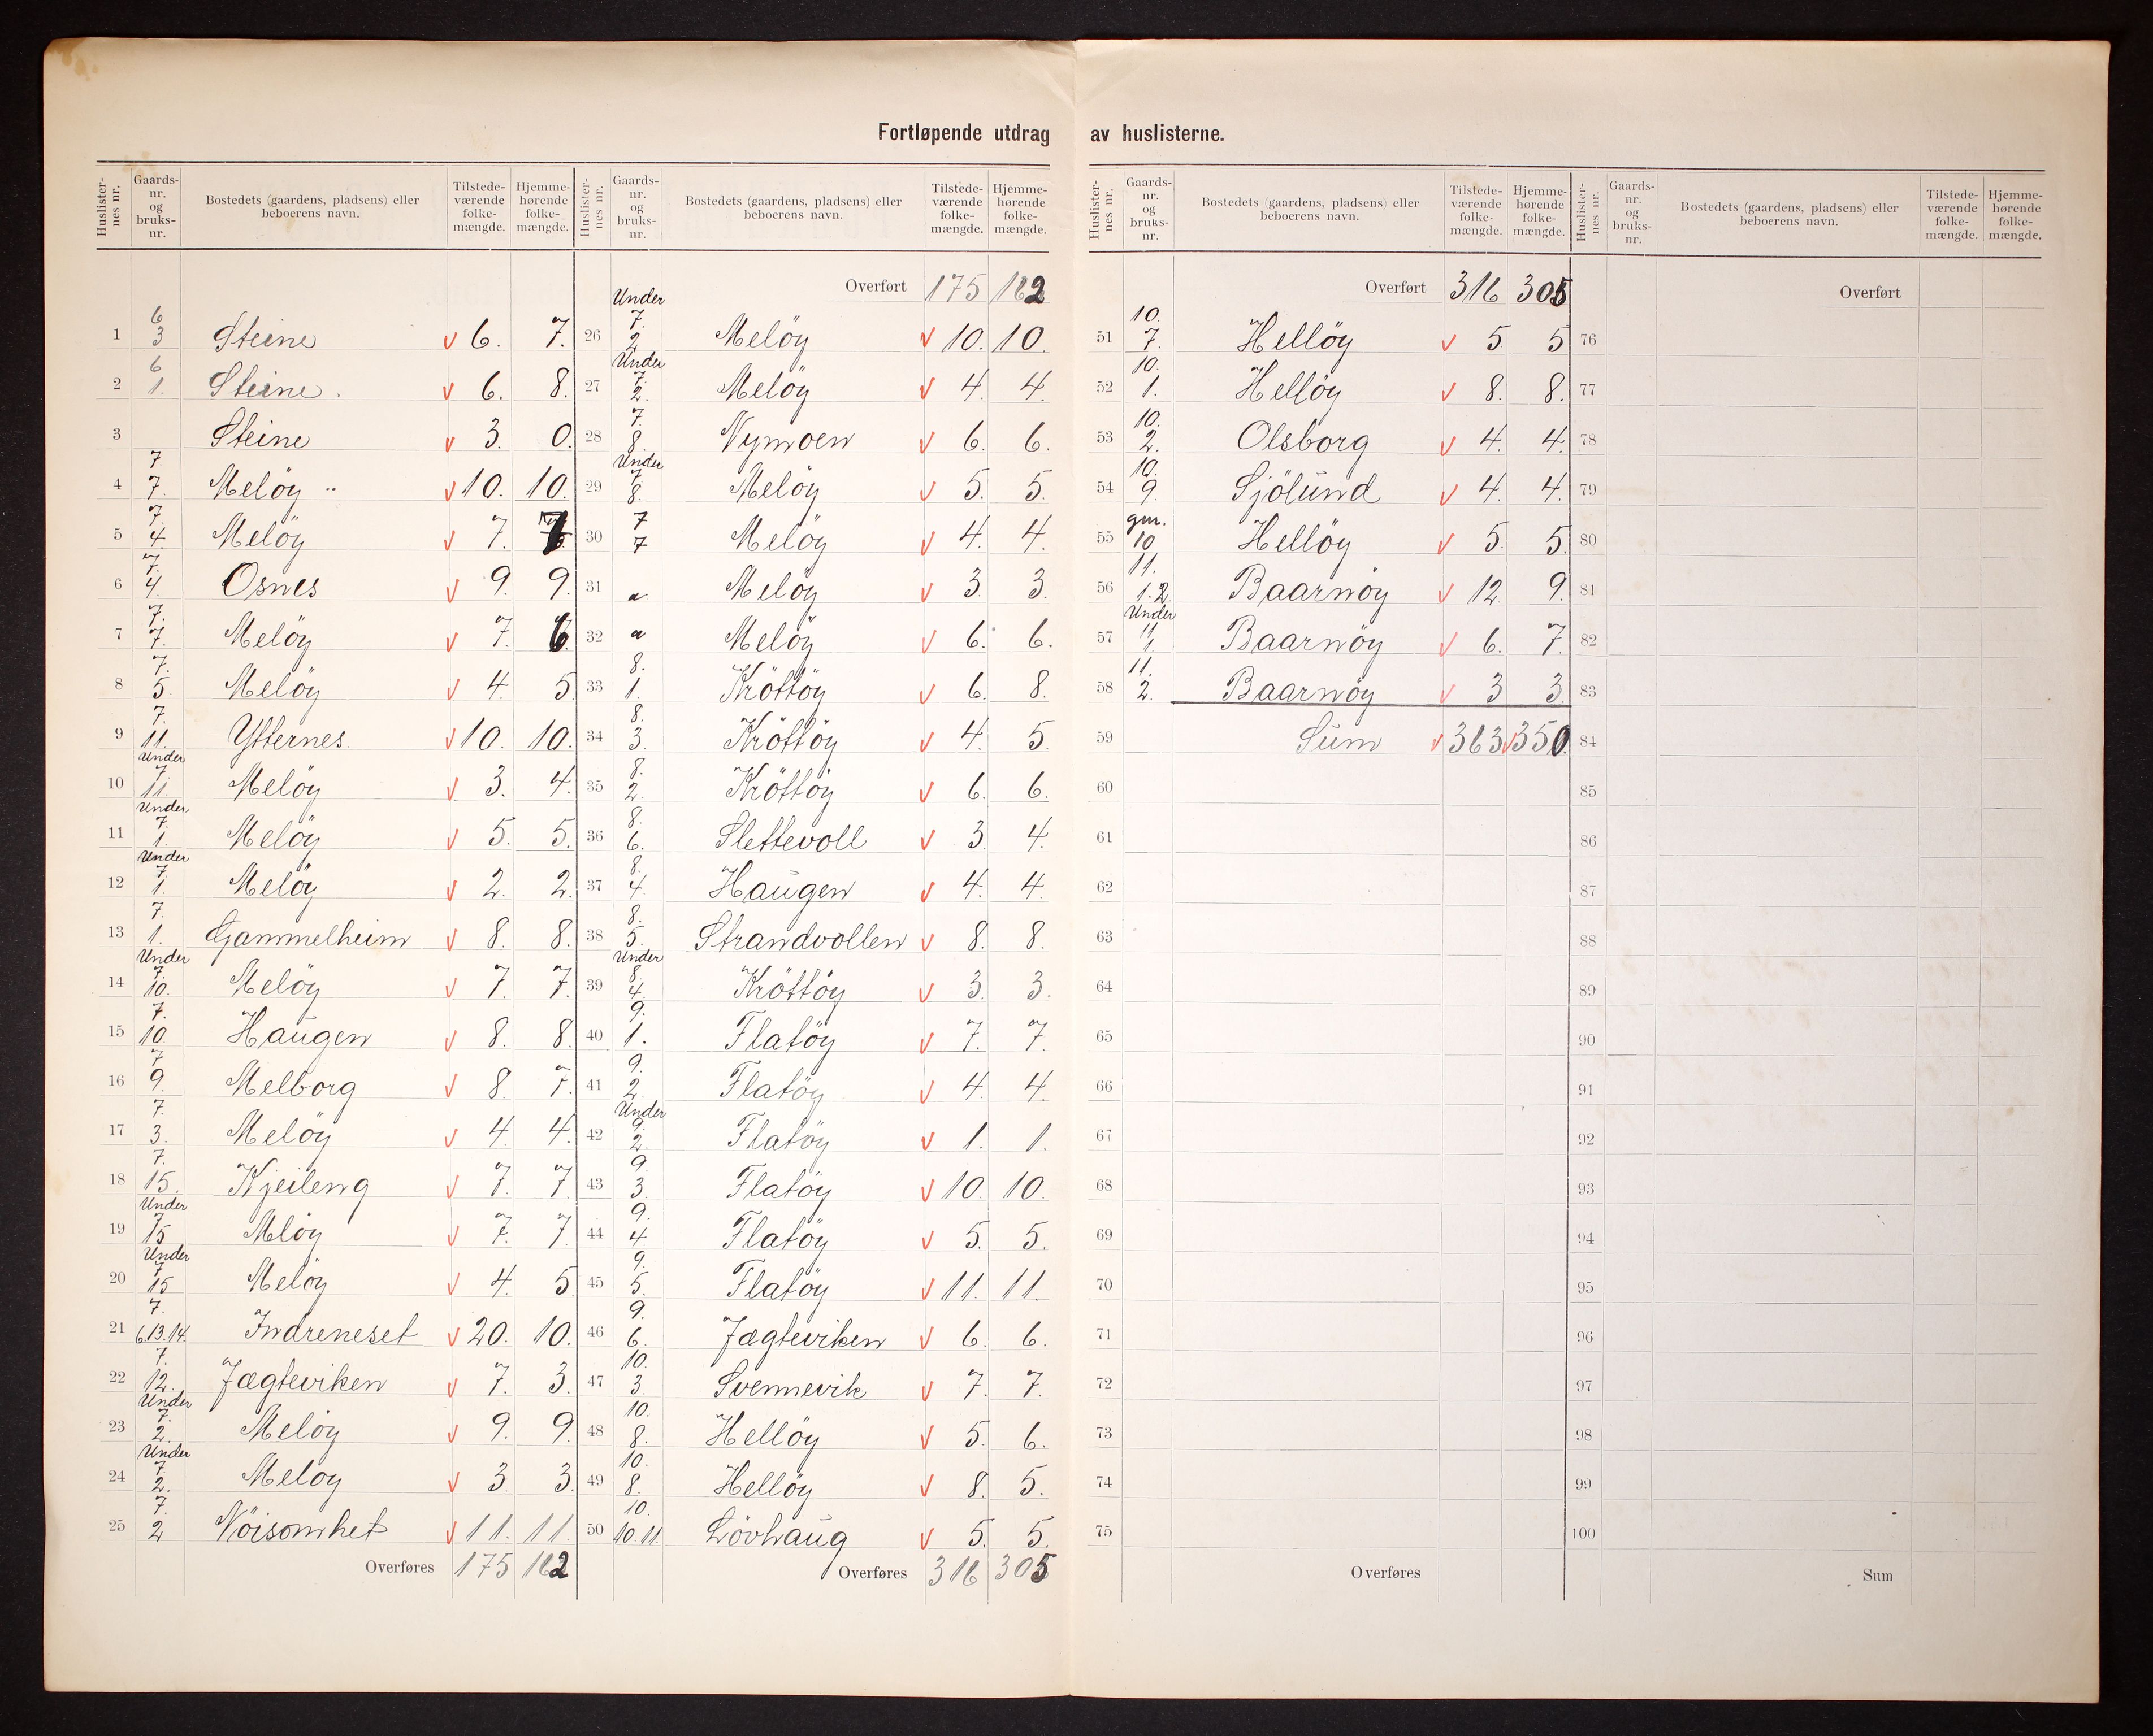 Fortløpende utdrag av huslisterne.
Huslisternes nr. | Gaards-nr. og bruks-nr. | Bostedets (gaardens, pladsens) eller beboerens navn. | Tilstede-værende folke-mængde. | Hjemme-hørende folke-mængde.
1 | 6 3 | Steine | v 6. | 7.
2 | 6 1. | Steine. | v 6. | 8.
3 | | Steine | v 3. | 0.
4 | 7 7. | Melöy | v 10. | 10.
5 | 7. 4. | Melöy | v 7. | 7
6 | 7. 4. | Osnes | v 9. | 9.
7 | 7. 7. | Melöy | v 7. | 6.
8 | 7. 5. | Melöy | v 4. | 5.
9 | 7. 11. | Ytternes. | v 10. | 10.
10 | Under 7 11. | Melöy | v 3. | 4.
11 | Under 7. 1. | Melöy | v 5. | 5.
12 | Under 7. 1. | Melöy | v 2. | 2.
13 | 7. 1. | Gammelheim | v 8. | 8.
14 | Under 7. 10. | Melöy | v 7. | 7.
15 | 7. 10. | Haugen | v 8. | 8.
16 | 7 9. | Melborg | v 8. | 7.
17 | 7. 3. | Melöy | v 4. | 4.
18 | 7. 15. | Kjeileng | v 7. | 7
19 | Under 7 15 | Mlöy | v 7. | 7
20 | Under 7 15 | Melöy | v 4. | 5
21 | 7. 6.13.14. | Indreneset | v 20. | 10.
22 | 7. 12. | Jægteviken | v 7. | 3.
23 | Under 7. 2. | Melöy | v 9. | 9.
24 | Under 7. 2. | Meloy | v 3. | 3.
25 | 7. 2 | Nöisomhet | v 11. | 11.
Overføres | 175 | 162
Huslisternes nr. | Gaards-nr. og bruks-nr. | Bostedets (gaardens, pladsens) eller beboerens navn. | Tilstede-værende folke-mængde. | Hjemme-hørende folke-mængde.
Overført | 175 | 162
26 | Under 7. 2 | Melöy | v 10. | 10.
27 | Under 7. 2. | Melöy | v 4. | 4.
28 | 7. 8. | Nymoen | v 6. | 6.
29 | Under 7. 8. | Melöy | v 5. | 5.
30 | 7 7 | Melöy | v 4. | 4.
31 | | Melöy | v 3. | 3.
32 | | Melöy | v 6. | 6.
33 | 8. 1. | Kröttöy | v 6. | 8.
34 | 8. 3. | Kröttöy | v 4. | 5.
35 | 8. 2. | Kröttöy | v 6. | 6.
36 | 8. 6. | Slettevoll | v 3. | 4.
37 | 8. 4. | Haugen | v 4. | 4.
38 | 8. 5. | Strandvollen | v 8. | 8.
39 | Under 8. 4. | Kröttöy | v 3. | 3.
40 | 9. 1. | Flatöy | v 7. | 7.
41 | 9. 2. | Flatöy | v 4. | 4.
42 | Under 9. 2. | Flatöy | v 1. | 1.
43 | 9. 3. | Flatöy | v 10. | 10.
44 | 9. 4. | Flatöy | v 5. | 5.
45 | 9. 5. | Flatöy | v 11. | 11.
46 | 9. 6. | Jægteviken | v 6. | 6.
47 | 10. 3. | Svennevik | v 7. | 7.
48 | 10. 8. | Hellöy | v 5. | 6.
49 | 10. 8. | Hellöy | v 8. | 5.
50 | 10. 10.11. | Lövhaug | v 5. | 5.
Overføres | 316 | 305
Huslisternes nr. | Gaards-nr. og bruks-nr. | Bostedets (gaardens, pladsens) eller beboerens navn. | Tilstede-værende folke-mængde. | Hjemme-hørende folke-mængde.
Overført | 316 | 305
51 | 10. 7. | Hellöy | v 5 | 5
52 | 10. 1. | Hellöy | v 8. | 8.
53 | 10. 2. | Olsborg | v 4. | 4.
54 | 10. 9. | Sjölund | v 4. | 4.
55 | gm. 10 | Hellöy | v 5. | 5.
56 | 11. 1.2 | Baarnöy | v 12. | 9.
57 | Under 11 1. | Baarnöy | v 6. | 7.
58 | 11. 2. | Baarnöy | v 3 | 3.
59 | | Sum | v 363 | v 350.
60
61
62
63
64
65
66
67
68
69
70
71
72
73
74
75
Overføres
Huslisternes nr. | Gaards-nr. og bruks-nr. | Bostedets (gaardens, pladsens) eller beboerens navn. | Tilstede-værende folke-mængde. | Hjemme-hørende folke-mængde.
Overført
76
77
78
79
80
81
82
83
84
85
86
87
88
89
90
91
92
93
94
95
96
97
98
99
100
Sum